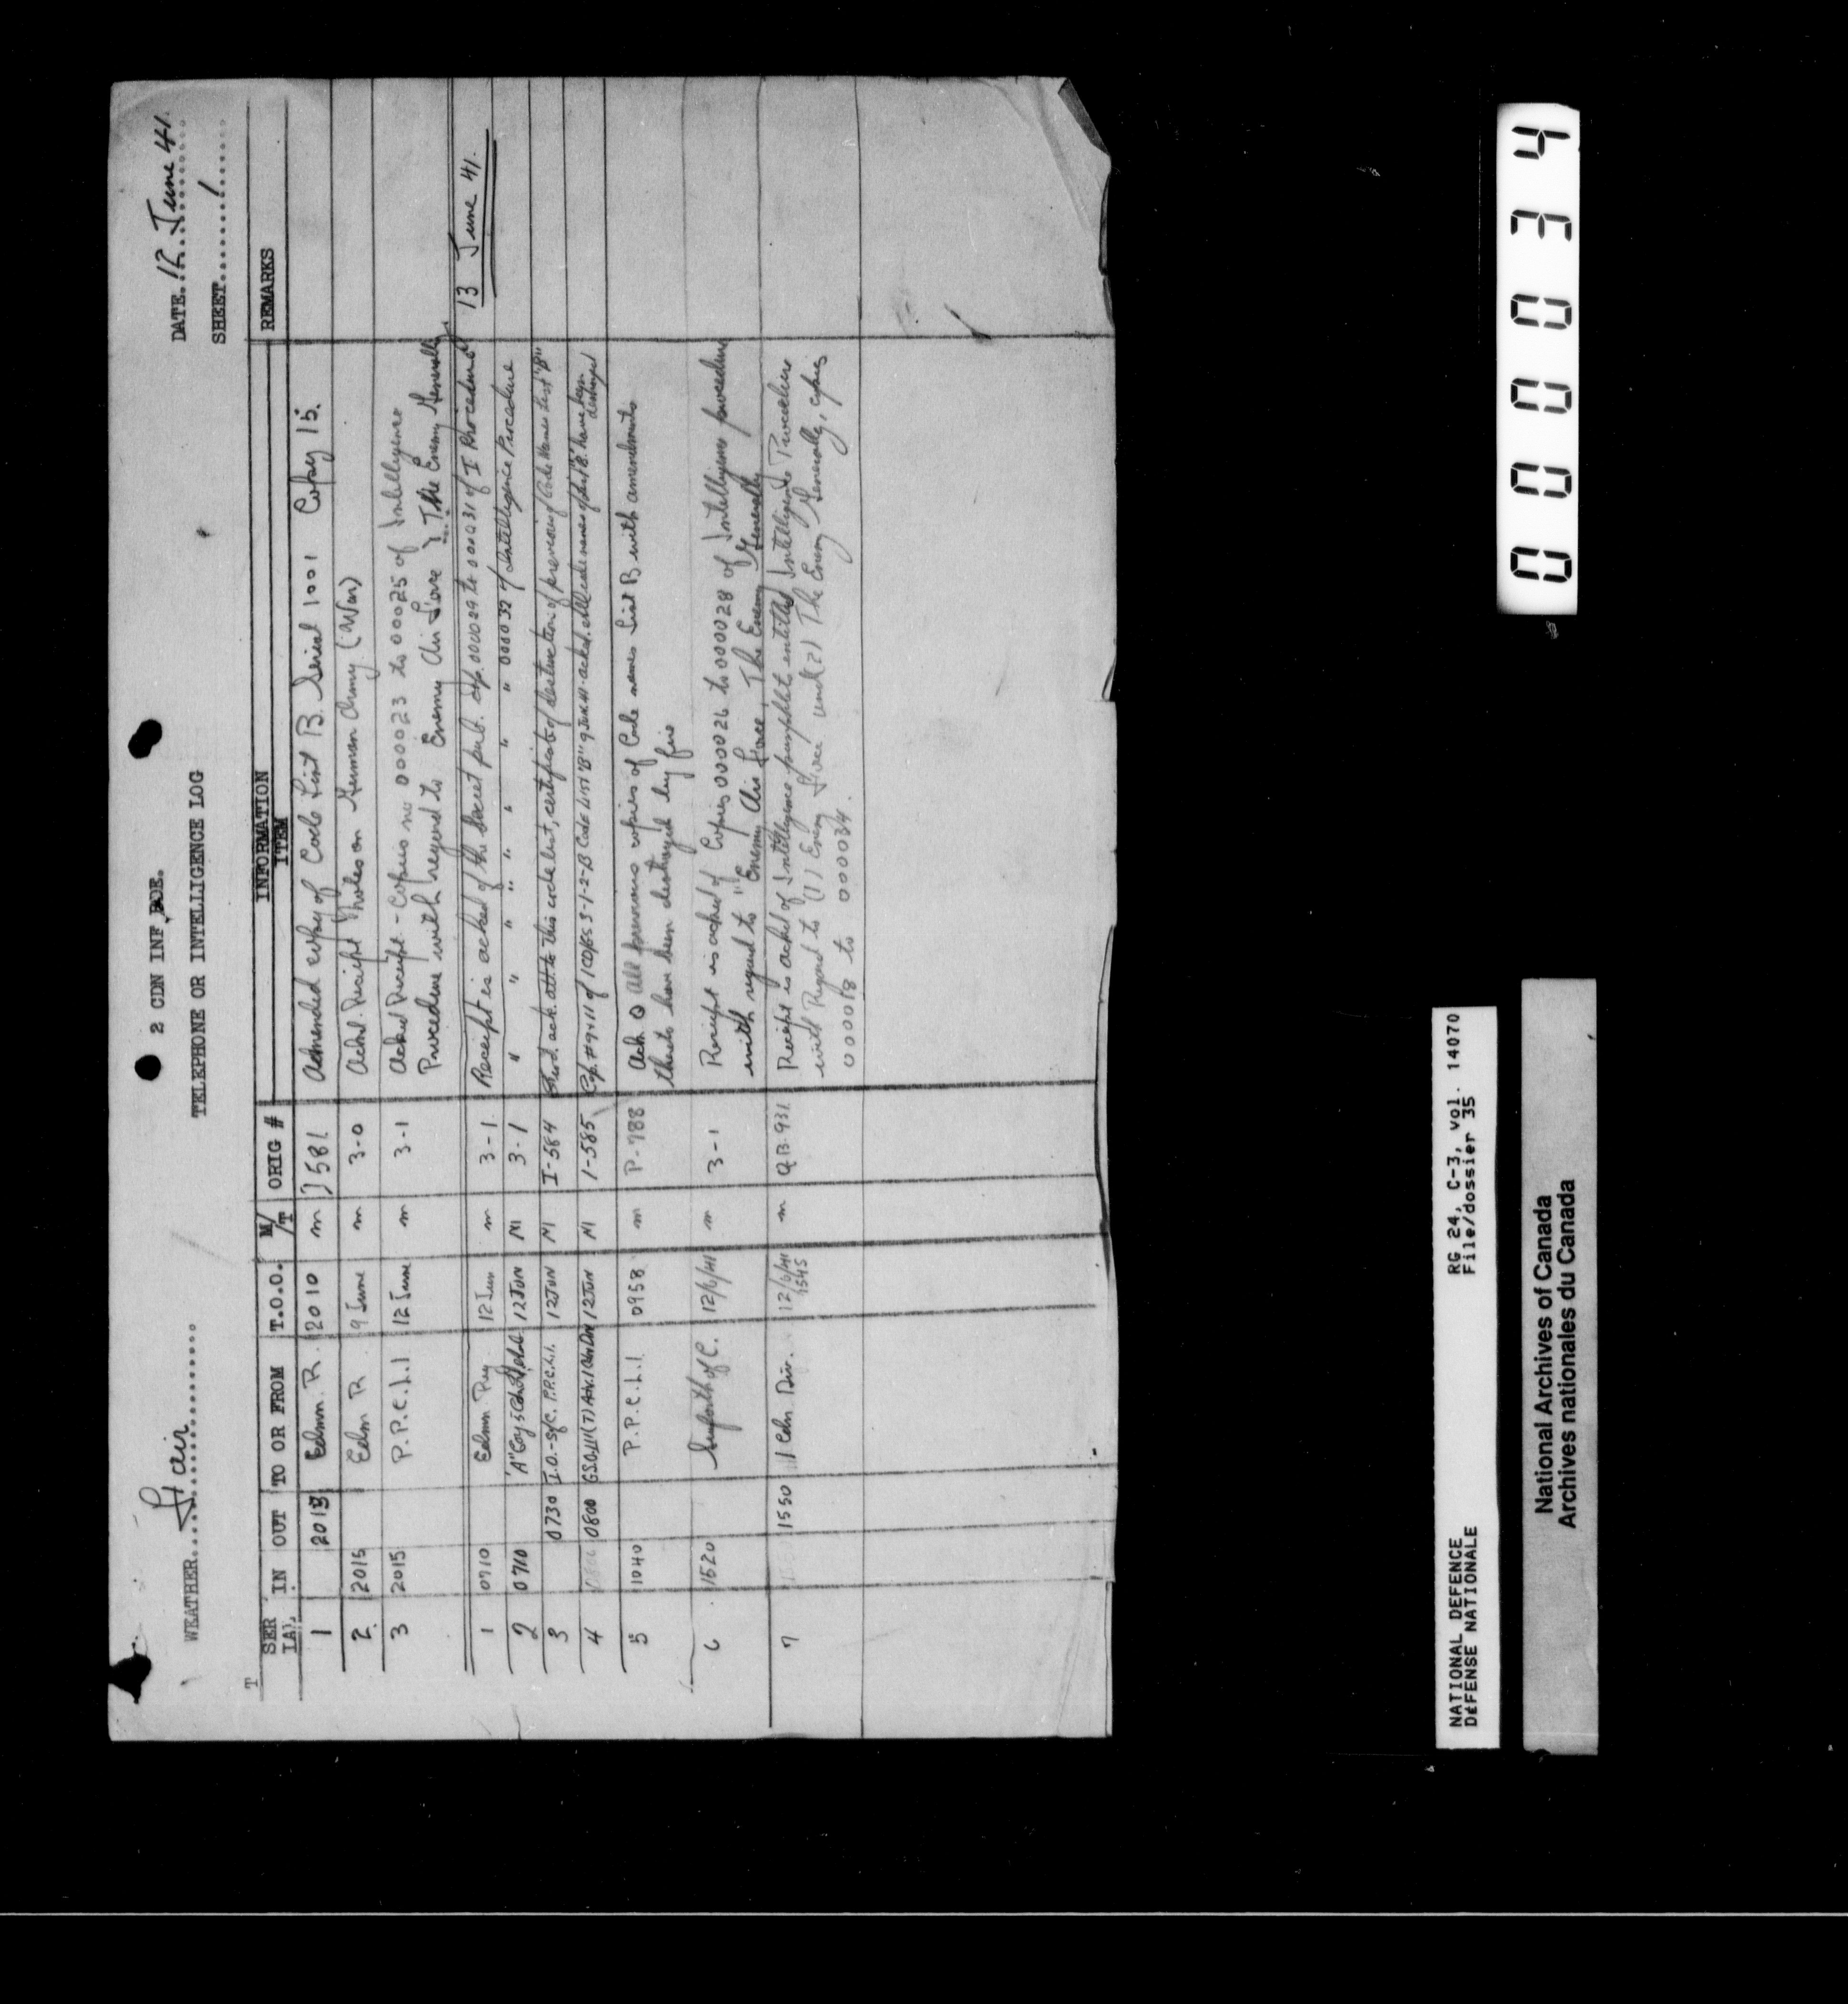 2 CDN INF BDE.
WEATHER....Fair............
TELEPHONE OR INTELLIGENCE LOG
DATE..12.June 41.
SHEET........1.....
T
INFORMATION
SER IAL IN OUT TO OR FROM T.O.O. M/T ORIG # ITEM REMARKS
1 2015 Edmn. R. 2010 m I581 Amended copy of Code List B. Serial 1001 Copy 15.
2. 2015 Edm R 9 June m 3-0 Ackd. Receipt notes on German Army (War)
3 2015 P.P.C.L.I 12 June m 3-1 Ackd Receipt - Copies no 000023 to 000025 of Intelligence
Procedure with regard to Enemy Air Force & The Enemy Generally
13 June 41.
1 0710 Edmn Reg 12 Jun m 3-1 Receipt is acked of the Secret pub. cop. 000029 to 000031 of I Procedure
2 0710 "A" Coy 12 JUN M 3-1 " " " " " " " 000032 of Intelligence Procedure
3 0730 I.O.-S of C. P.P.C.L.I. 12 JUN M I-584 ack. att. to this code list, certificate of destruction of previous of Code Names List "B"
4 0800 G.S.O. III (I) Adv. 1 Cdn Div 12 JUN M I-585 Cop. #9 & 11 of 1CD/GS 5-1-2-B Code List "B" 9 JUN 41 - acked. All code names of list "B" have been destroyed
5 1040 P.P.C.L.I. 0958 m P-788 Ack O All previous copies of Code names List B with amendments
thereto have been destroyed by fire
6 1520 Seaforth of C. 12/6/41 m 3-1 Receipt is acked of Copies 000026 to 000028 of Intelligence procedure
with regard to "Enemy Air Force, The Enemy Generally
7 1550 1 Cdn. Div. 12/6/41 1545 m QB-931 Receipt is ackd of Intelligence pamphlet entitled Intelligence Procedure
with Regard to (1) Enemy Air Force and (2) The Enemy Generally, copies
000018 to 0000034.
000034
NATIONAL DEFENCE
DÉFENSE NATIONALE
RG 24, C-3, vol. 14070
File/dossier 35
National Archives of Canada
Archives nationales du Canada